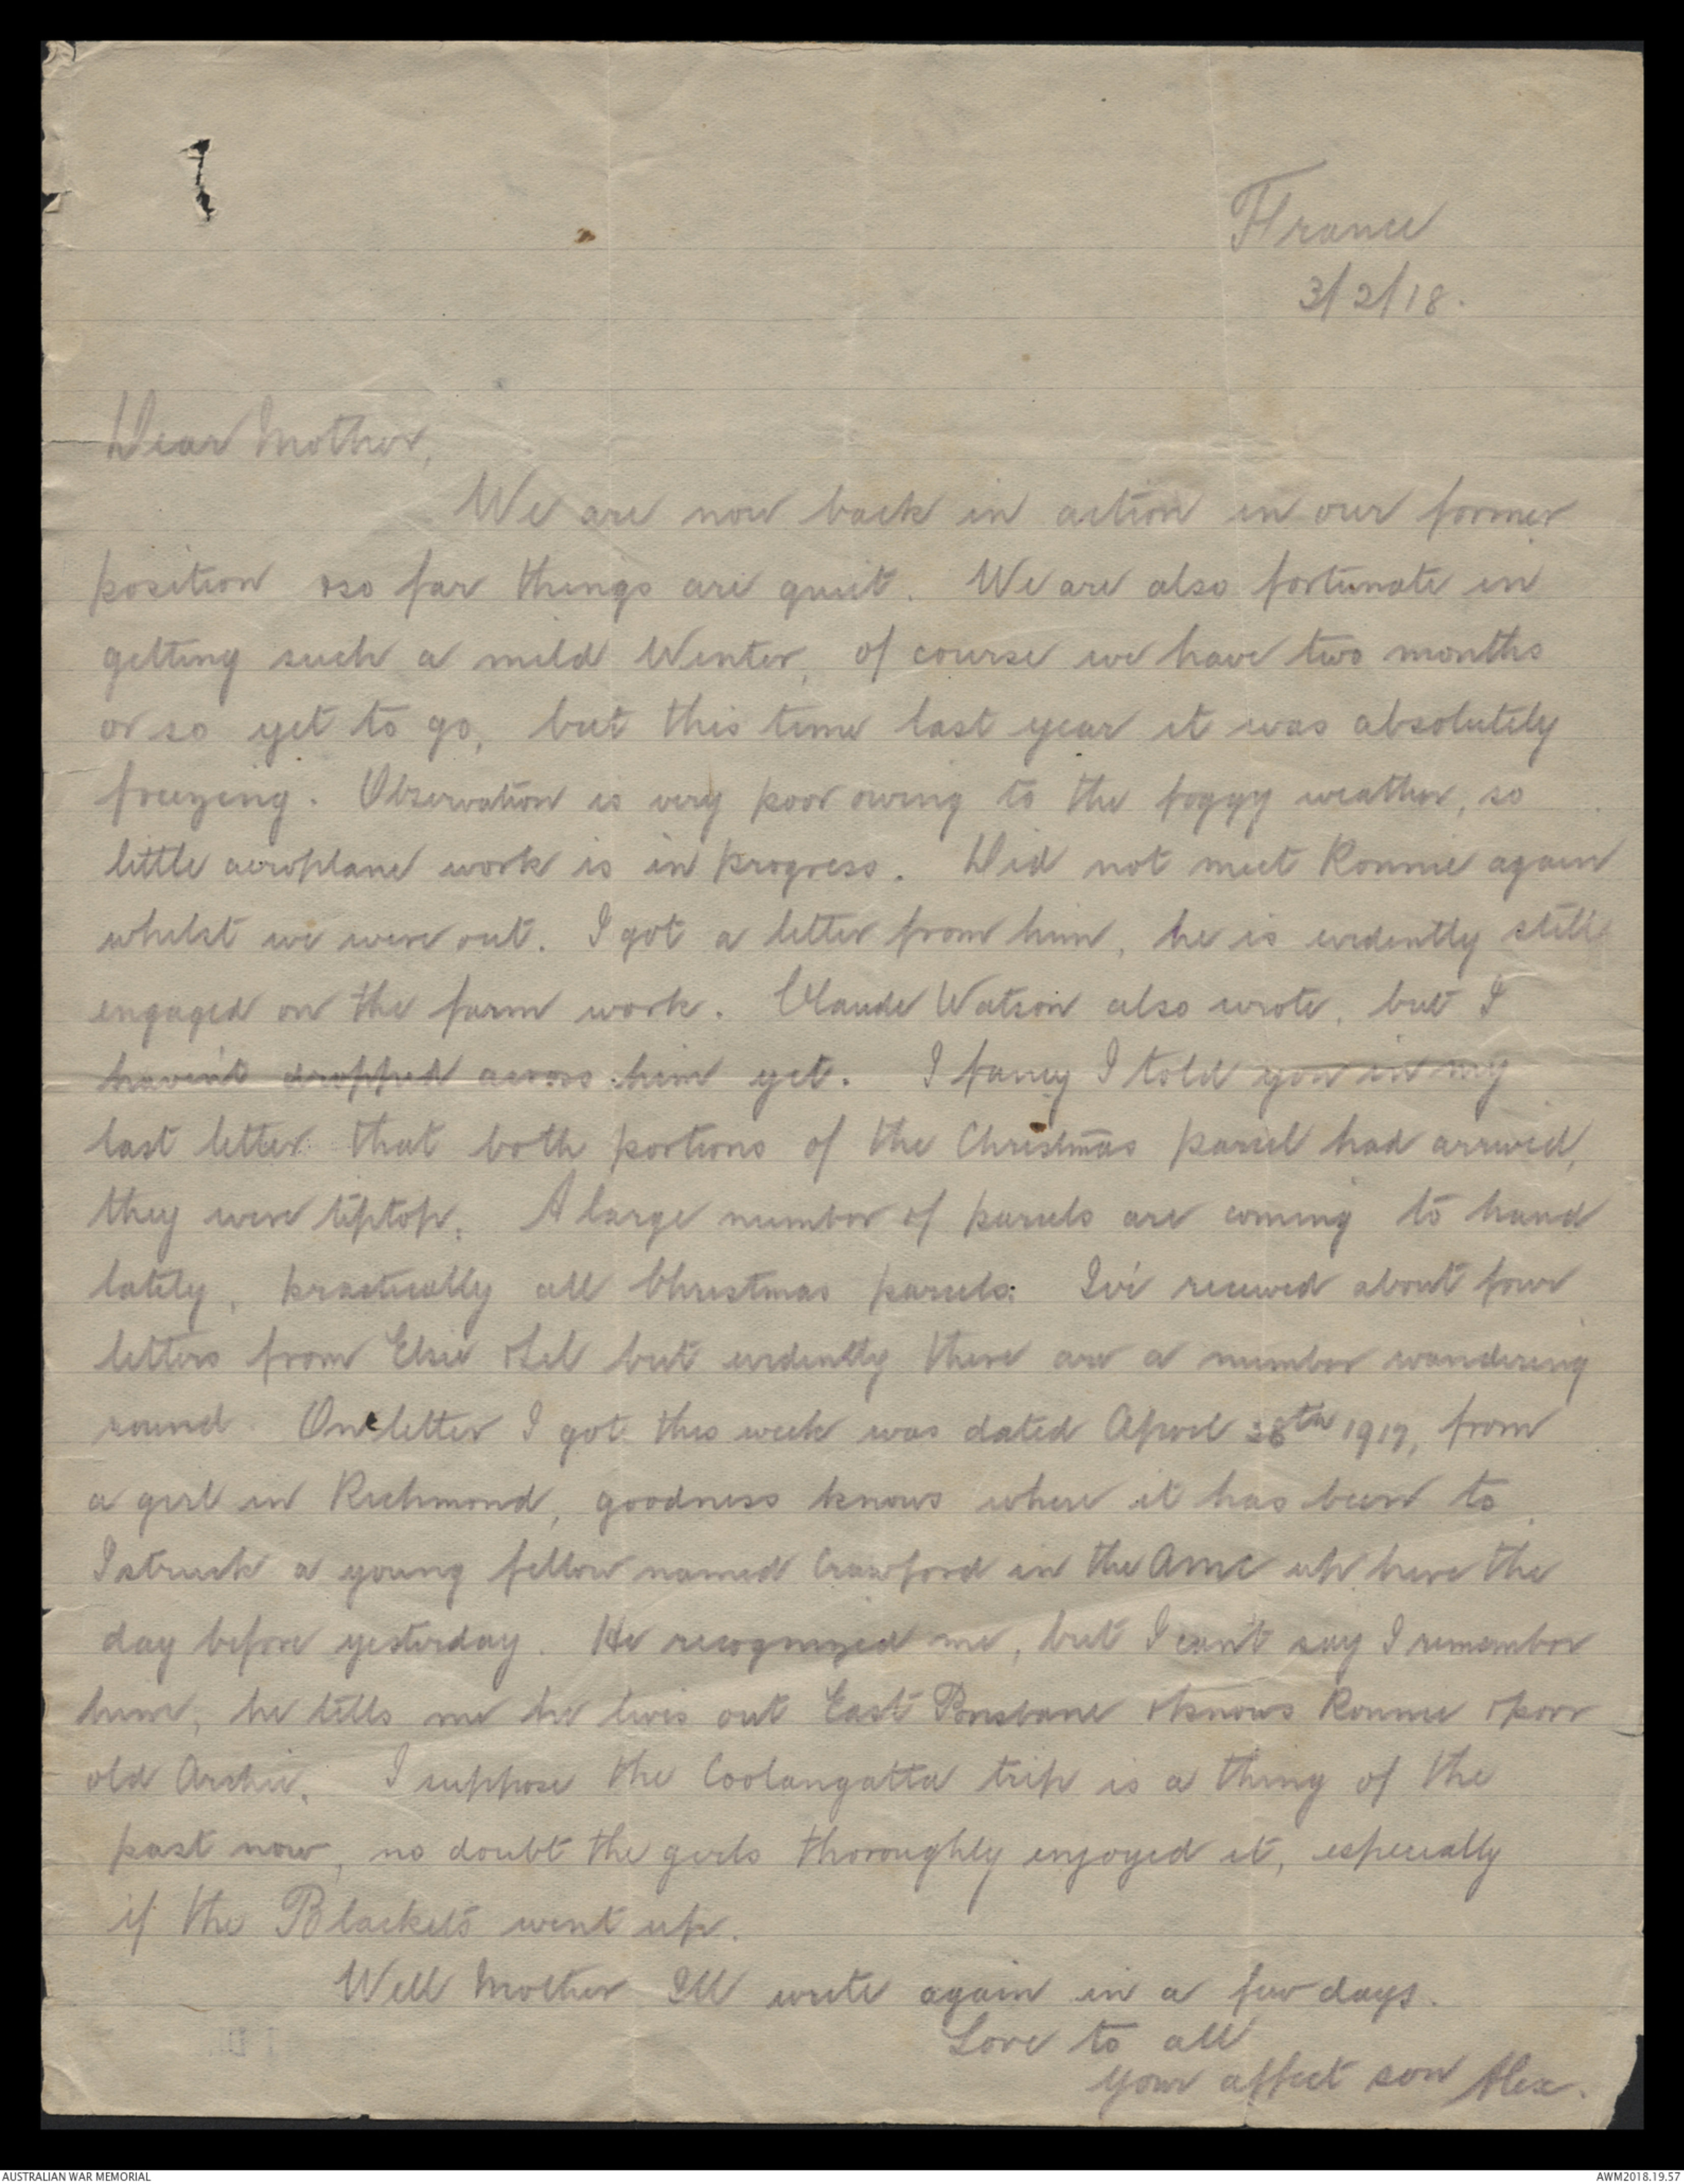 France
3/2/18.
Dear Mother,
We are now back in action in our former
position & so far things are quiet. We are also fortunate in
getting such a mild Winter, of course we have two months
or so yet to go, but this time last year it was absolutely
freezing. Observation is very poor owing to the foggy weather, so
little aeroplane work is in progress. Did not meet Ronnie again
whilst we were out. I got a letter from him, he is evidently still
engaged on the farm work. Claude Watson also wrote, but I
haven't dropped across him yet. I fancy I told you in my
last letter that both portions of the Christmas parcel had arrived,
they were tiptop. A large number of parcels are coming to hand
lately, practically all Christmas parcels. I've received about four
letters from Elsie & Lil but evidently there are a number wandering
round. One letter I got this week was dated April 1917, from
a girl in Richmond, goodness knows where it has been to.
I struck a young fellow named Crawford in the AMC up here the
day before yesterday. He recognized me, but I can't say I remember
him, he tells me he lives out East Brisbane & knows Ronnie & poor
old Archie. I suppose the Coolangatta trip is a thing of the
past now, no doubt the girls thoroughly enjoyed it, especially
if the Blackets went up.
Well Mother I'll write again in a few days.
Love to all
Your affect son Alex.
AUSTRALIAN WAR MEMORIAL
AWM2018.19.57